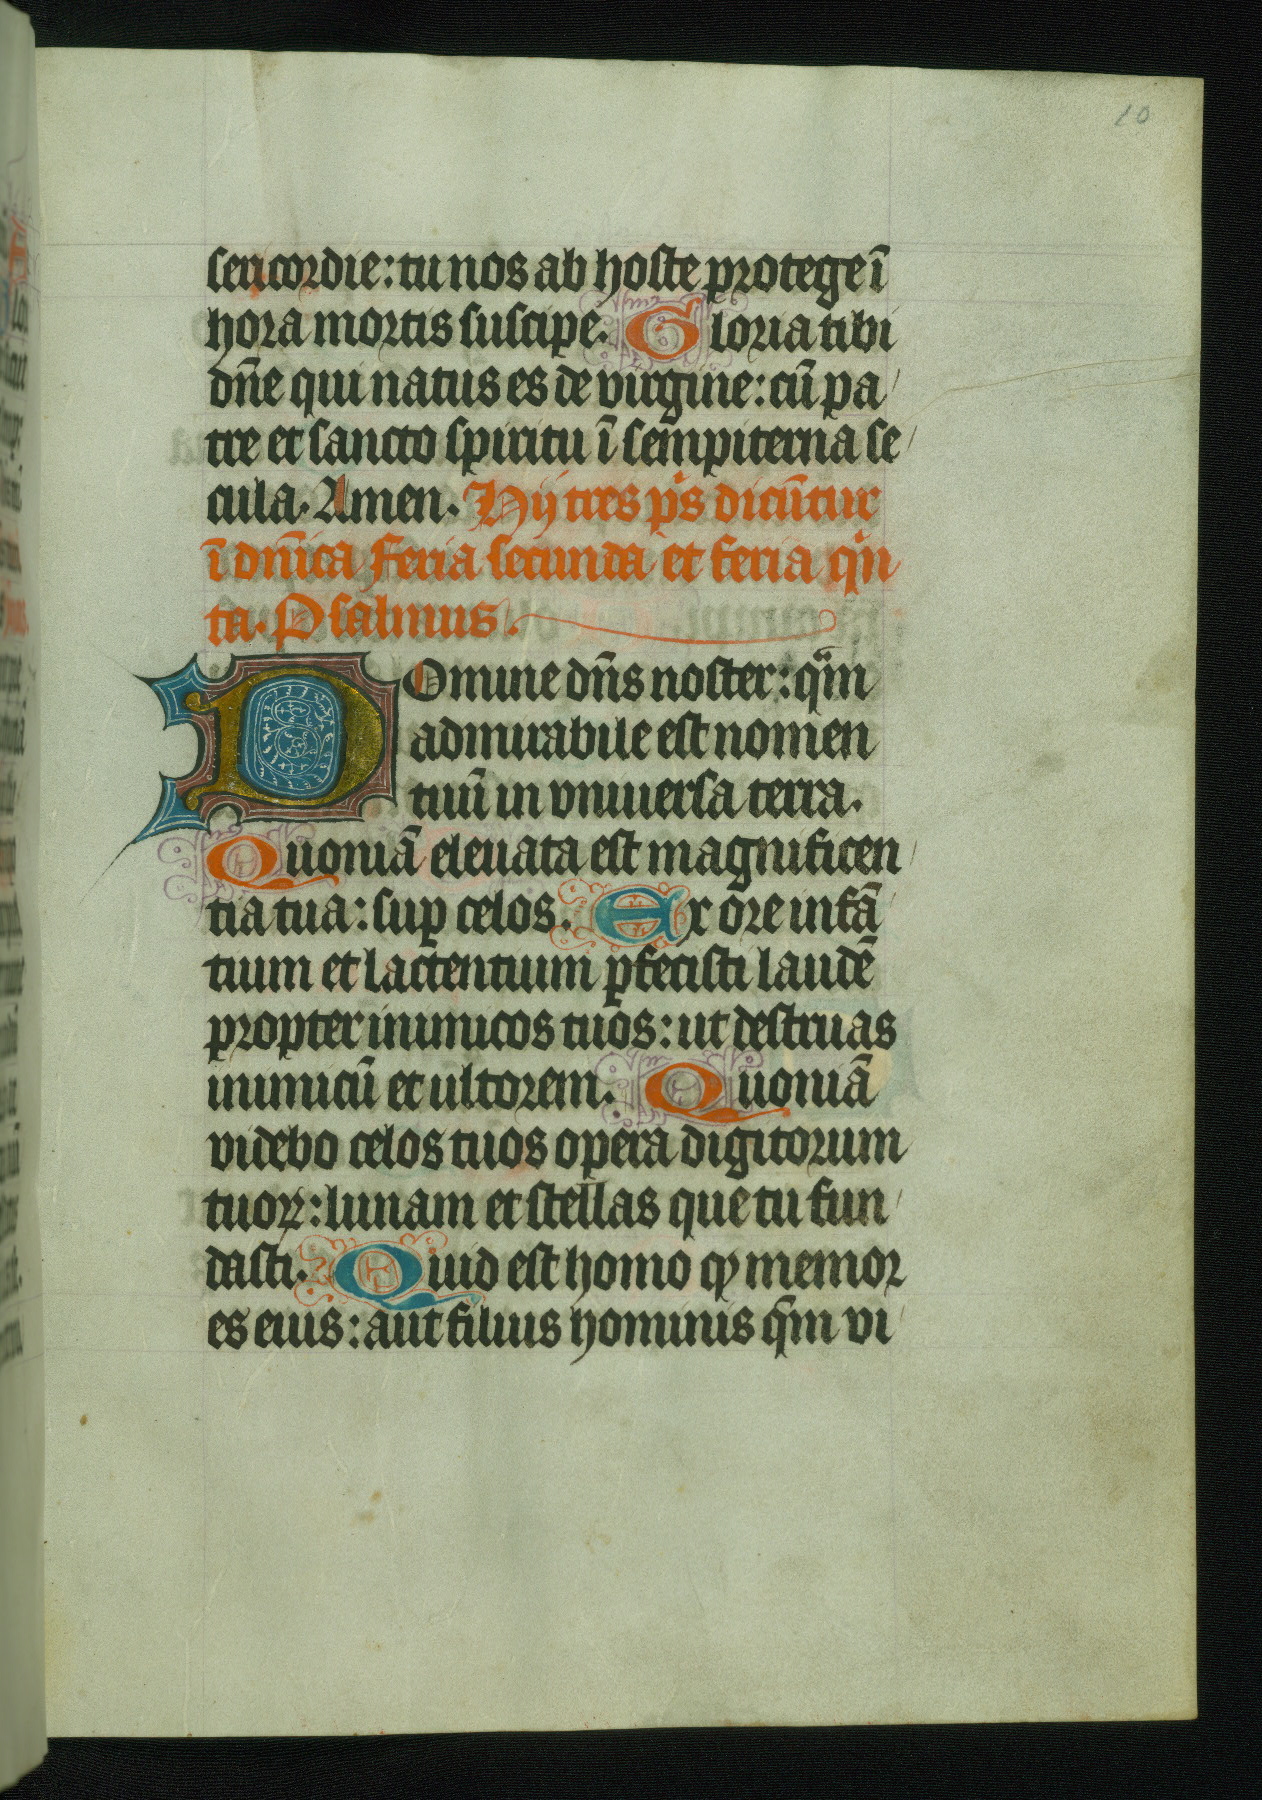 10
sericordie: tu nos ab hoste protege ī
hora mortis suscipe. Gloria tibi
dn̄e qui natus es de virgine: cū pa
tre et sancto spiritu ī sempiterna se
cula. Amen. Hij tres ps̄ dicūtur
ī dn̄ica feria secunda et feria qͥn
ta. Psalmus.
Domine dn̄s noster: qͣm
admirabile est nomen
tuū in vniuersa terra.
Quoniā eleuata est magnificen
tia tua: suꝑ celos. Ex ore infā
tium et lactentium ꝑfecisti laudē
propter inimicos tuos: ut destruas
inimicū et ultorem. Quoniā
videbo celos tuos opera digitorum
tuoꝝ: lunam et stellas que tu fun
dasti. Quid est homo ꝙ memor
es eius: aut filius hominis qm̄ vi